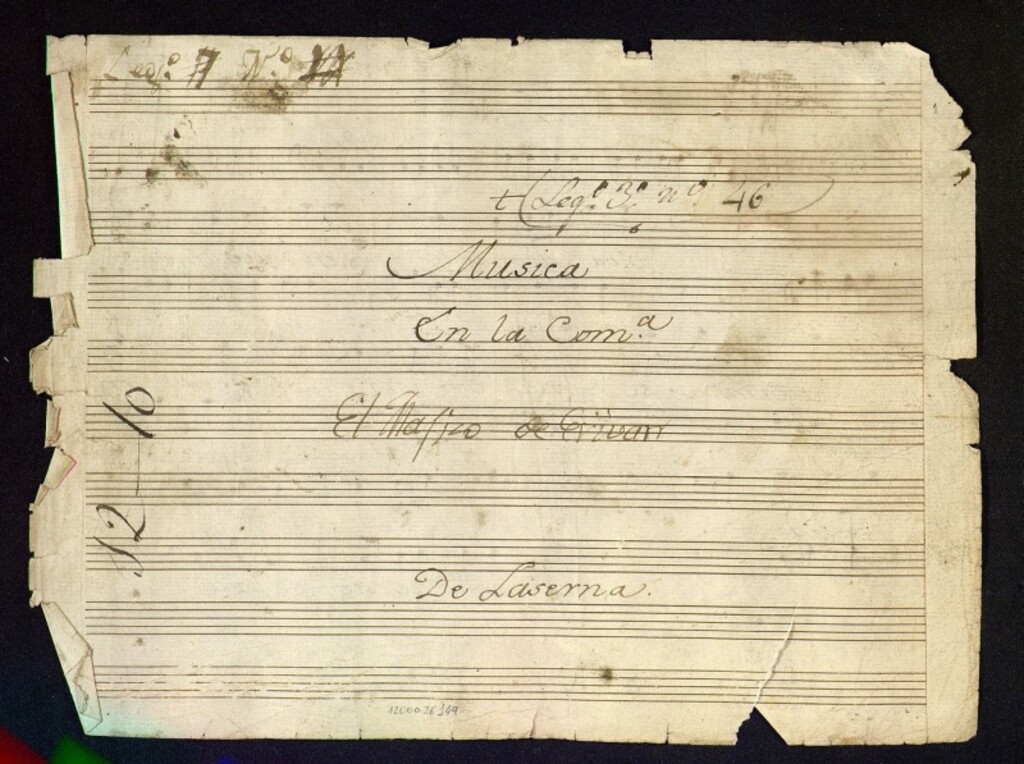 Leg.º 7 N.º
t (Leg.º 3.º nº 46
Musica
En la Com.ª
El Magico de Erivan
De Laserna.
12-10
1200026169